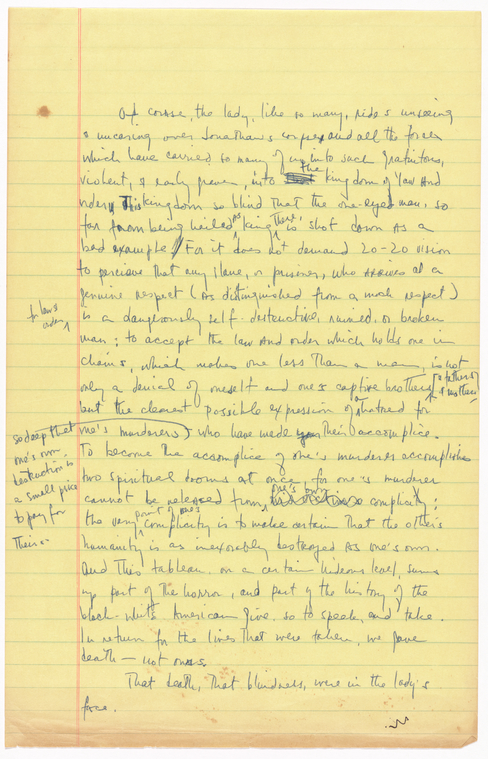 Of course, the lady, like so many, rides unseeing
& uncaring over Jonathan's corpse, and all the forces
which have carried so many of us into such gratuitous,
violent, & early graves, into the kingdom of law and
order. This kingdom so blind that the one-eyed man, so
far from being hailed as king there, is shot down as a
bad example. For it does not demand 20-20 vision
to perceive that any slave, or prisoner, who arrives at a
genuine respect (as distinguished from a mock respect)
for law & order,
is a dangerously self-destructive, ruined, or broken
man: to accept the law and order which holds one in
chains, which makes one less than a man, is not
only a denial of oneself and one's captive brothers, & fathers, & mothers
but the clearest possible expression of a hatred for
one's murderers, who have made you their accomplice.
so deep that
one's own
destruction is
a small price
to pay for
theirs.
To become the accomplice of one's murderer accomplishes
two spiritual dooms at once, for one's murderer
cannot be released from one's own complicity:
the very point of one's complicity is to make certain that the other's
humanity is as inexorably destroyed as one's own.
And this tableau, on a certain hideous level, sums
up part of the horror, and part of the history of the
black-white American give, so to speak, and take.
In return for the lives that were taken, we gave
death — not ours.
That death, that blindness, were in the lady's
face.